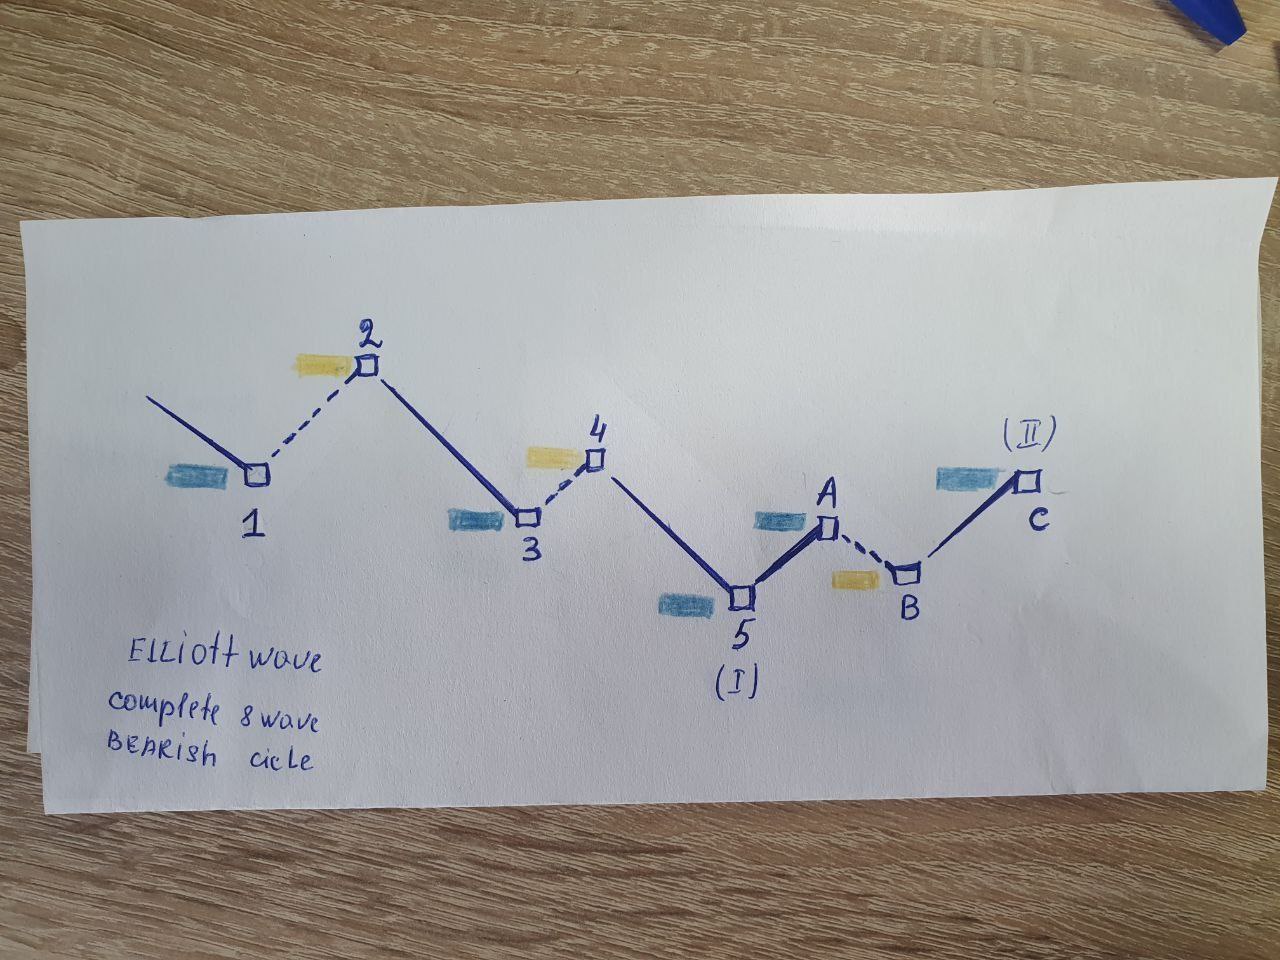 2
4
(II)
A
1
C
3
B
5
(I)
Elliott wave
complete 8 wave
BEARish cicle